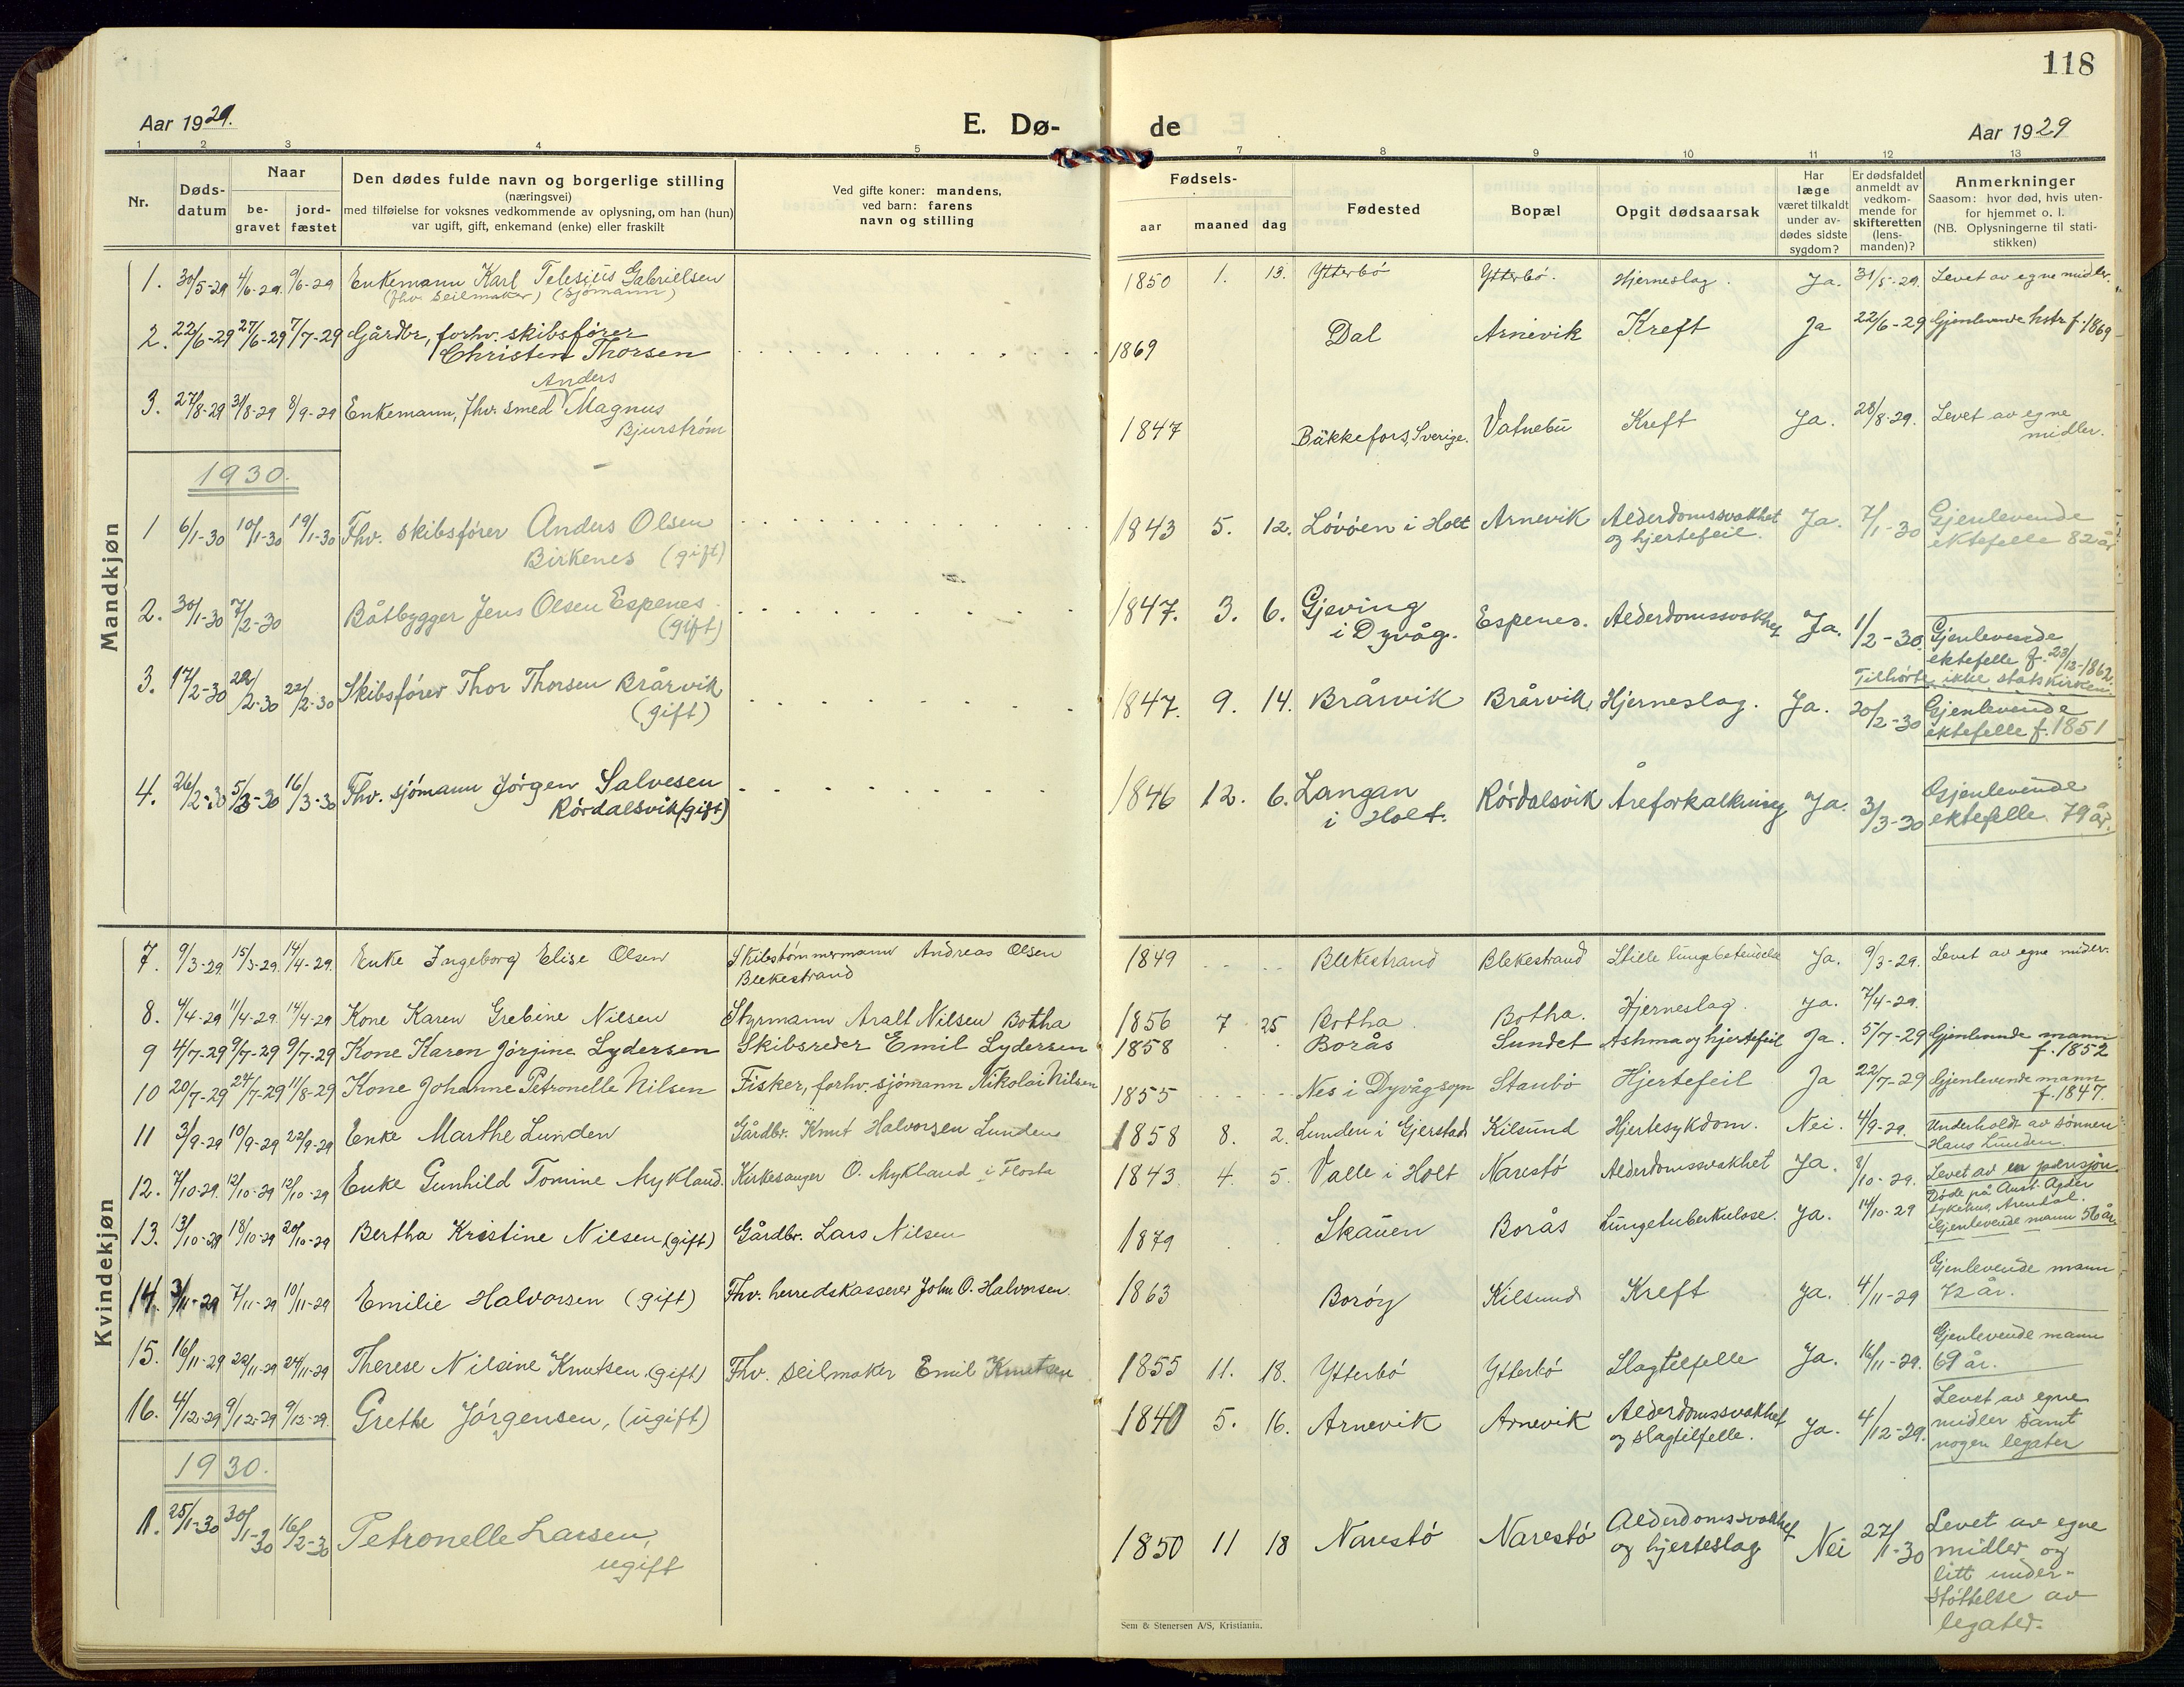 118
Aar 1929.
E. Dø-
de
Aar 1929
1 2 3 4 5 7 8 9 10 11 12 13
Nr.
Døds-
datum
Naar
be-
gravet
jord-
fæstet
Den dødes fulde navn og borgerlige stilling
(næringsvei)
med tilføielse for voksnes vedkommende av oplysning, om han (hun)
var ugift, gift, enkemand (enke) eller fraskilt
Ved gifte koner: mandens,
ved barn: farens
navn og stilling
Fødsels-
aar maaned dag
Fødested
Bopæl
Opgit dødsaarsak
Har
læge
været tilkaldt
under av-
dødes sidste
sygdom?
Er dødsfaldet
anmeldt av
vedkom-
mende for
skifteretten
(lens-
manden)?
Anmerkninger
Saasom: hvor død, hvis uten-
for hjemmet o. l.
(NB. Oplysningerne til stati-
stikken)
Mandkjøn
1. 30/5-29 4/6-29. 9/6-29 Enkemann Karl Telesius Gabrielsen 1850 1. 13. Ytterbö Ytterbö. Hjerneslag. Ja. 31/5-29. Levet av egne midler.
(fhv. Seilmaker) (Sjömann)
2. 22/6-29 27/6-29 7/7-29 Gårdbr, forhv. skibsfører 1869 Dal Arnevik Kreft Ja 22/6-29 Gjenlevende hstr f. 1869
Christen Thorsen
Anders
3. 27/8-29 31/8-29 8/9-29 Enkemann, fhv. smed Magnus 1847 Bäkkefors, Sverige. Vatnebu Kreft Ja. 28/8-29. Levet av egne
Bjurström midler.
1930.
1 6/1-30 10/1-30 19/1-30 Fhv. skibsfører Anders Olsen 1843 5. 12. Lövöen i Holt Arnevik Alderdomssvakhet Ja. 7/1-30 Gjenlevende
Birkenes (gift) og hjertefeil. ektefelle 82 år
2. 30/1-30 7/2-30 Båtbygger Jens Olsen Espenes. 1847. 3. 6. Gjeving Espenes. Alderdomssvakhet Ja. 1/2-30. Gjenlevende
(gift) i Dyvåg. ektefelle f. 23/12-1862.
Tilhörte ikke statskirken.
3. 17/2-30 22/2-30 22/2-30 Skibsfører Thor Thorsen Brårvik 1847. 9. 14. Brårvik Brårvik. Hjerneslag. Ja. 20/2-30 Gjenlevende
(gift) ektefelle f. 1851
4. 26/2-30 5/3-30 16/3-30 Fhv. sjömann Jörgen Salvesen 1846 12. 6. Langan Rördalsvik Åreforkalkning Ja. 3/3-30 Gjenlevende
Rördalsvik (gift) i Holt. ektefelle 79 år.
Kvindekjøn
7. 9/3-29. 15/3-29. 14/4-29. Enke Ingeborg Elise Olsen Skibstømmermann Andreas Olsen 1849 Blekestrand Blekestrand Stille lungebetendelse Ja. 9/3-29. Levet av egne midler.
Blekestrand
8. 4/4-29 11/4-29. 14/4-29 Kone Karen Grebine Nilsen Styrmann Aralt Nilsen Botha 1856 7 25 Botha Botha. Hjerneslag. Ja. 7/4-29.
9 4/7-29 9/7-29 9/7-29 Kone Karen Jörgine Lydersen Skibsreder Emil Lydersen 1858 Borås Sundet Ashma og hjertefeil Ja. 5/7-29 Gjenlevende mann
f. 1852
10 20/7-29 24/7-29 11/8-29 Kone Johanne Petronelle Nilsen Fisker, forhv. sjömann Nikolai Nilsen 1855 Nes i Dyvåg sogn Staubö Hjertefeil Ja 22/7-29 Gjenlevende mann
f. 1847.
11 3/9-29 10/9-29 22/9-29 Enke Marthe Lunden Gårdbr. Knut Halvorsen Lunden 1858 8. 2. Lunden i Gjerstad Kilsund Hjertesykdom. Nei. 4/9-29. Underholdt av sönnen
Hans Lunden.
12. 7/10-29. 12/10-29 12/10-29 Enke Gunhild Tomine Mykland. Kirkesanger O. Mykland i Flosta 1843 4. 5. Valle i Holt Narestö Alderdomssvakhet Ja. 8/10-29. Levet av en pensjon.
13. 13/10-29 18/10-29 20/10-29 Bertha Kristine Nilsen (gift) Gårdbr. Lars Nilsen 1879 Skauen Borås Lungetuberkulose. Ja. 14/10-29 Döde på Aust-Agder
sykehus, Arendal.
Gjenlevende mann 56 år.
14. 3/11-29 7/11-29 10/11-29 Emilie Halvorsen (gift) Fhv. herredskasserer John O. Halvorsen. 1863 Boröy Kilsund Kreft Ja. 4/11-29 Gjenlevende mann
72 år.
15. 16/11-29 22/11-29 24/11-29 Therese Nilsine Knutsen (gift) Fhv. seilmaker Emil Knutsen 1855 11. 18. Ytterbö Ytterbö Slagtilfelle Ja. 16/11-29. Gjenlevende mann
69 år.
16. 4/12-29 9/12-29 9/12-29. Grethe Jörgensen, (ugift) 1840 5. 16. Arnevik Arnevik Alderdomssvakhet Ja. 4/12-29. Levet av egne
og slagtilfelle. midler samt
nogen legater
1930.
1. 25/1-30 30/1-30 16/2-30 Petronelle Larsen, 1850 11 18 Narestö Narestö Alderdomssvakhet Nei 27/1-30 Levet av egne
ugift og hjerteslag midler og
litt under-
støttelse av
legater.
Sem & Stenersen A/S, Kristiania.